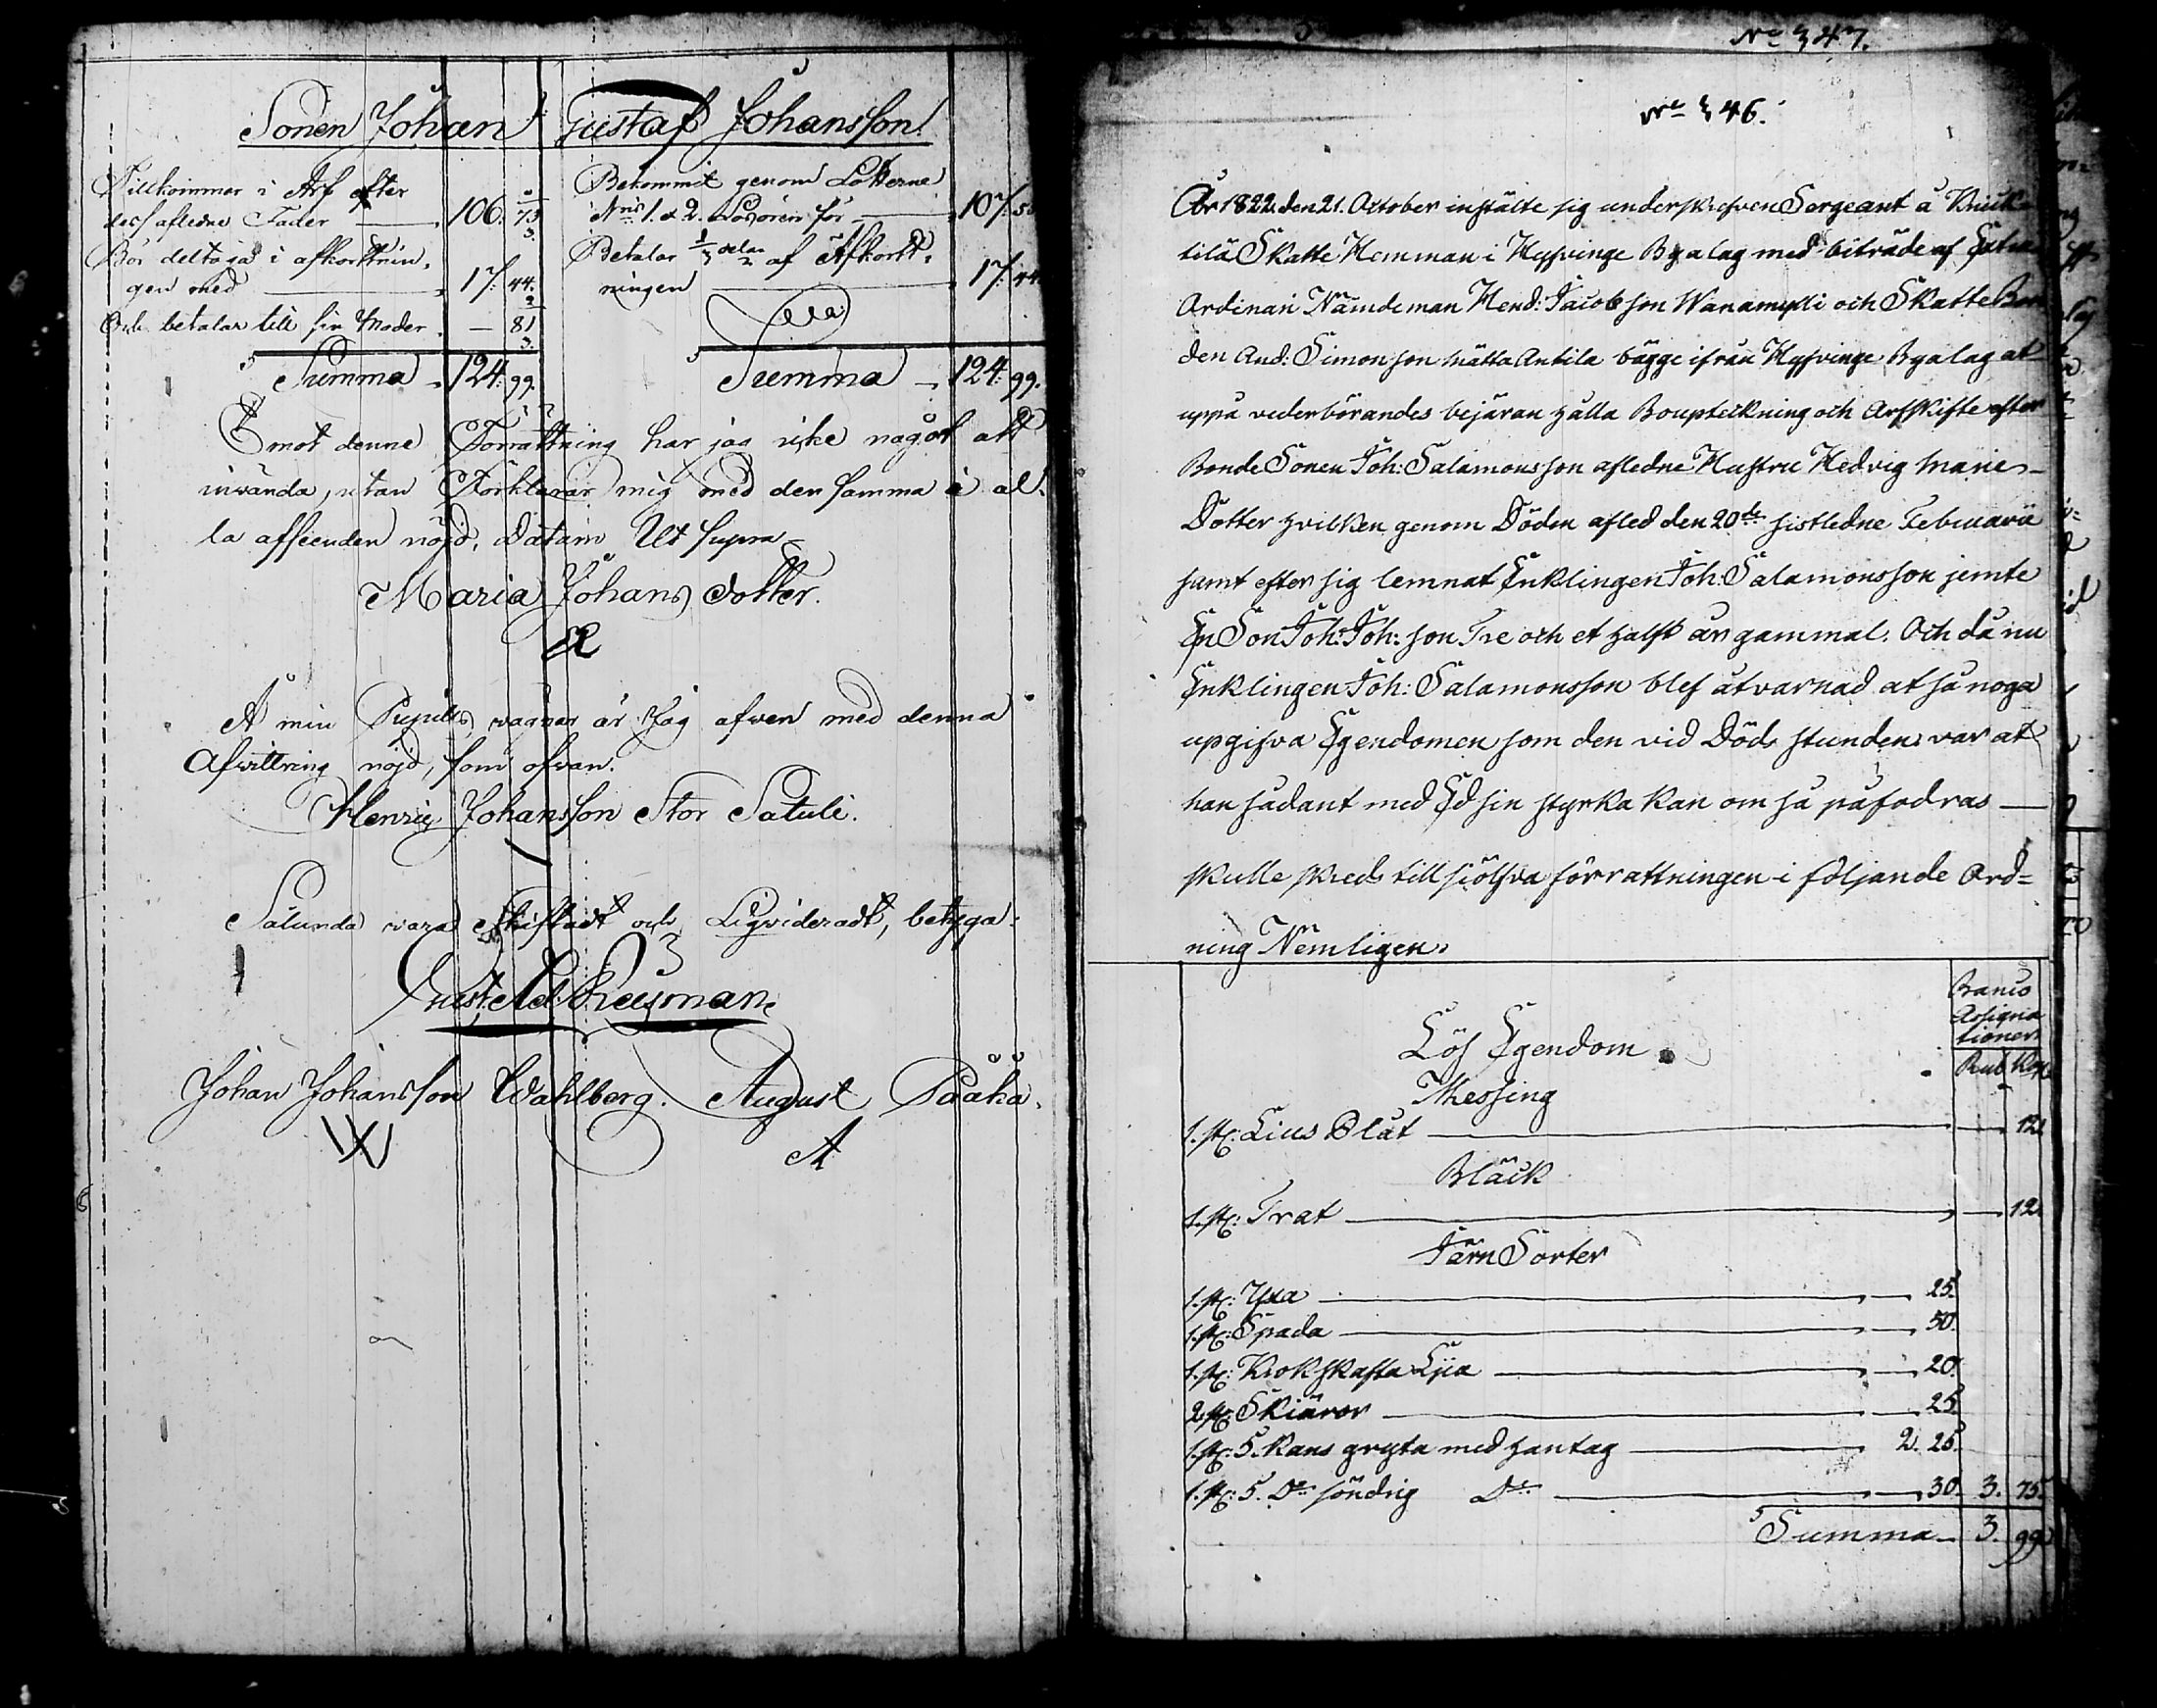 Sonen Johan Gustaf Johansson.
Tillkommer i Arf efter
dess afledne Fader 106. 73
Bör deltaga i afkorttnin,
gen med 17. 44.
Och betalar till sin Moder — 81
Summa 124. 99.
Bekommit genom Lotterne
N:ris 1. & 2. Lösören för 107. 55
Betalar 1/3 delar af Afkortt,
ningen 17. 44.
Summa 124. 99.
Emot denne Förrättning har jag icke något att
invända, utan Förklarar mig med den samma i al,
la afseenden nöjd, Datum Ut supra
Maria Johans dotter.
Å min Pupills vagnar är Jag äfwen med denna
Afwittring nöjd, som ofvan.
Henric Johansson Stor Satuli.
Sålunda vara Skiftadt och Ligvideradt, betyga:
Gust. Ad:
Johan Johansson Wahlberg. August Pääkä.
A
N:o 347.
N:o 346.
År 1822. den 21. October instälte sig underskrefven Sergeant å Knuk-
tila Skatte Hemman i Hyfvinge Byalag med biträde af Extra
Ordinari Nämndeman Hend: Jacobsson Wanamylli och Skatte Bon
den And: Simonsson Mätta Antila bägge ifrån Hyfvinge Byalag at
uppå vederbörandes bejäran hålla Boupteckning och Arfskifte efter
Bonde Sonen Joh: Salamonsson afledne Hustru Hedvig Maries-
Dotter hvilken genom Döden afled den 20:de sistledne Februarii
samt efter sig lemnat Enklingen Joh: Salamonsson jemte
En Son Joh: Joh:son Tre och et halft år gammal. Och då nu
Enklingen Joh: Salamonsson blef åtvarnad at så noga
upgifva Egendomen som den vid Döds stunden var at
han sådant med Ed sin styrka kan om så påfodras —
skulle skreds till siölfva förrattningen i följande Ord=
ning Nemligen.
Banco
Assigna
tioner
Rub Kop
Lös Egendom
Messing
1. st: Lius Plåt — 12.
Bläck
1. st: Trat — 12.
Järn Sorter
1. st: Yxa — 25.
1. st: Spada — 50.
1. st: Krokskafta Lija — 20.
2. st: Skiäror — 25.
1. st: 5. Kans gryta med hantag 2. 25.
1. st: 5. D:o söndrig D:o — 30. 3. 75.
Summa 3. 99.